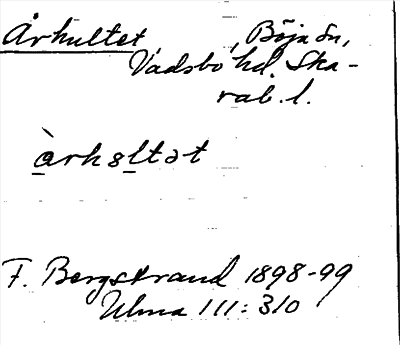 Århultet, Böja sn,
Vadsbo hd. Ska-
rab. l.
àrhsltət
F. Bergstrand 1898-99
Ulma 111:310